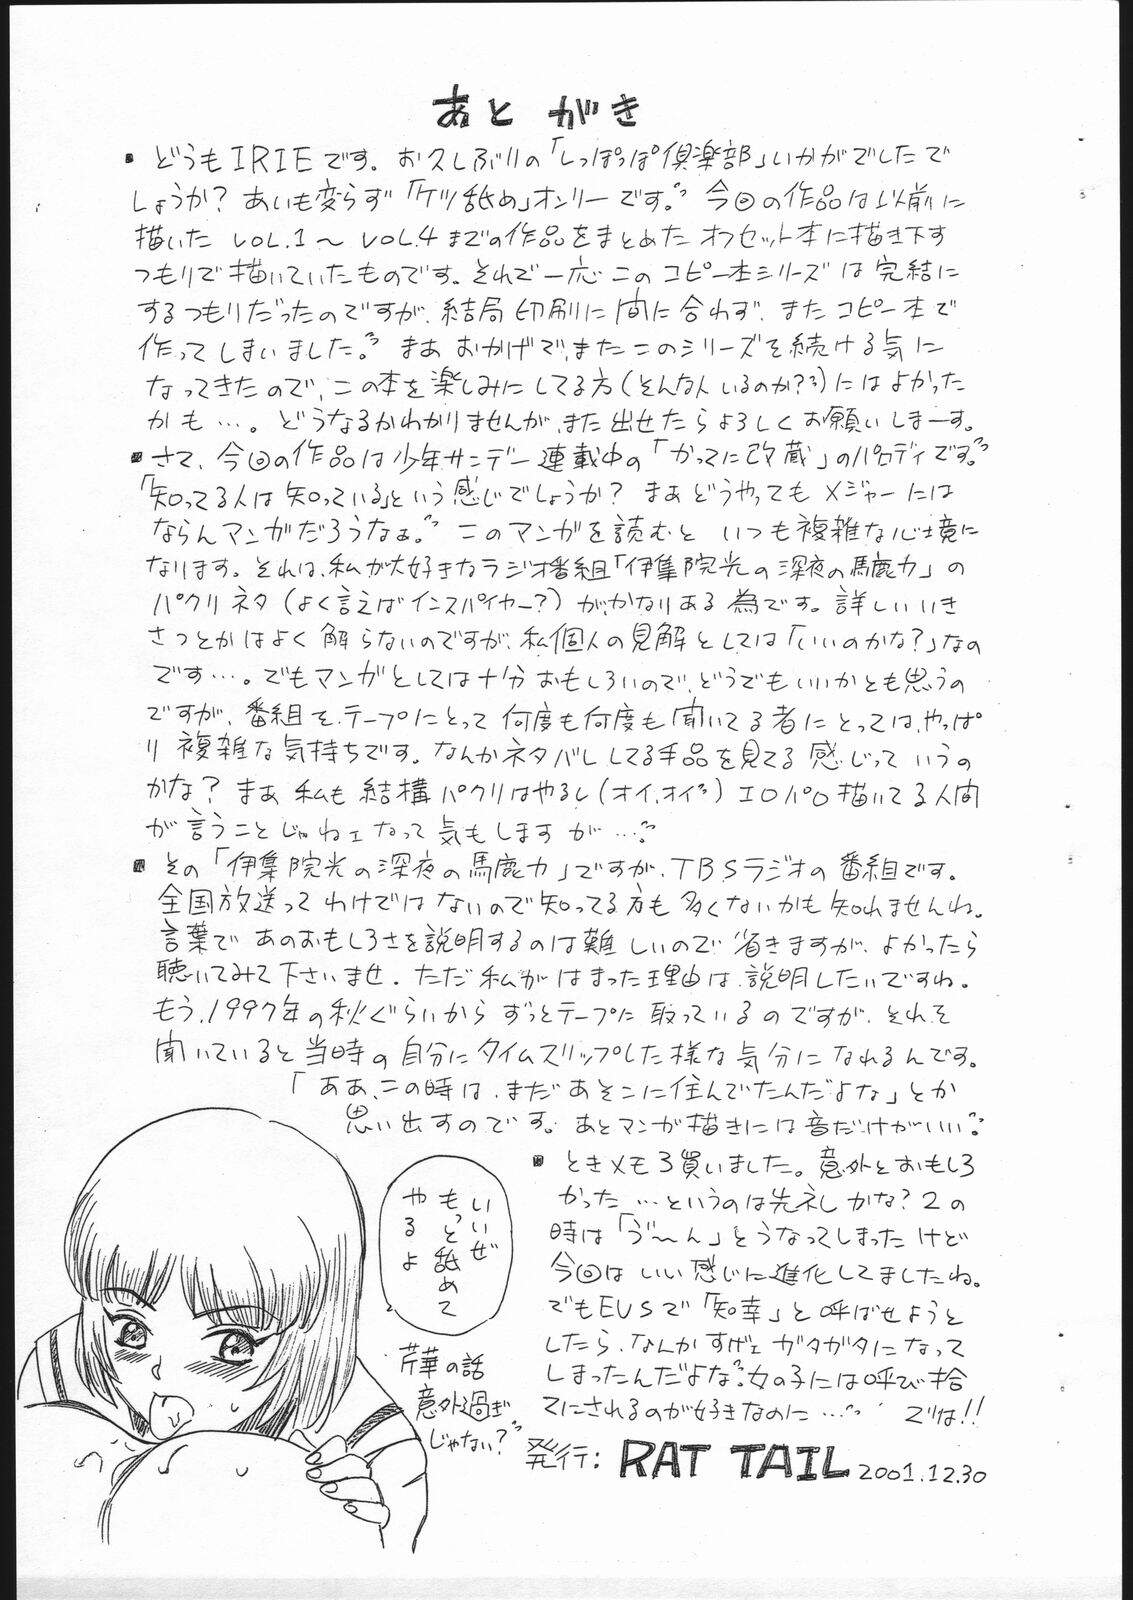 あとがき
どうもIRIEです。お久しぶりの「しっぽっぽ倶楽部」いかがでしたで
しょうか？あいも変らず「ケツ舐め」オンリーです。今回の作品は以前に
描いた VOL.1〜VOL.4までの作品をまとめた オフセット本に描き下す
つもりで描いていたものです。それで一応このコピー本シリーズは完結に
するつもりだったのですが、結局印刷に間に合わず、またコピー本で
作ってしまいました。まあおかげで、またこのシリーズを続ける気に
なってきたので、この本を楽しみにしてる方（そんな人いるのか？）にはよかった
かも…。どうなるかわかりませんが、また出せたらよろしくお願いしまーす。
さて、今回の作品は少年サンデー連載中の「かってに改蔵」のパロディです。
「知ってる人は知っている」という感じでしょうか？まぁどうやってもメジャーには
ならんマンガだろうなぁ。このマンガを読むといつも複雑な心境に
なります。それは、私が大好きなラジオ番組「伊集院光の深夜の馬鹿力」の
パクリネタ（よく言えばインスパイヤー？）が、かなりある為です。詳しいいき
さつとかはよく解らないのですが、私個人の見解としては「いいのかな？」なの
です…。でもマンガとしては十分おもしろいので、どうでもいいかとも思うの
ですが、番組を、テープにとって何度も何度も聞いてる者にとっては、やっぱ
り複雑な気持ちです。なんかネタバレしてる手品を見てる感じっていうの
かな？まぁ私も結構パクリはやるし（オイ、オイ）エロパロ描いてる人間
が言うことじゃねェなって気もしますが…。
その「伊集院光の深夜の馬鹿力」ですが、TBSラジオの番組です。
全国放送ってわけではないので知ってる方も多くないかも知れませんね。
言葉であのおもしろさを説明するのは難しいので省きますが、よかったら
聴いてみて下さいませ。ただ私がはまった理由は、説明したいですね。
もう、1997年の秋ぐらいからずっとテープに取っているのですが、それを
聞いていると当時の自分にタイムスリップした様な気分になれるんです。
「ああ、この時は、まだあそこに住んでたんだよな」とか
思い出すのです。あとマンガ描きには音だけがいい。
ときメモ3買いました。意外とおもしろ
かった…というのは失礼かな？2の
時は「う゛〜ん」とうなってしまったけど
今回はいい感じに進化してましたね。
でもEVSで「知幸」と呼ばせようと
したら、なんかすげェガタガタになって
しまったんだよな。女の子には呼び捨
てにされるのが好きなのに… では!!
芹華の話
意外過ぎ
じゃない？
発行: RAT TAIL 2001.12.30